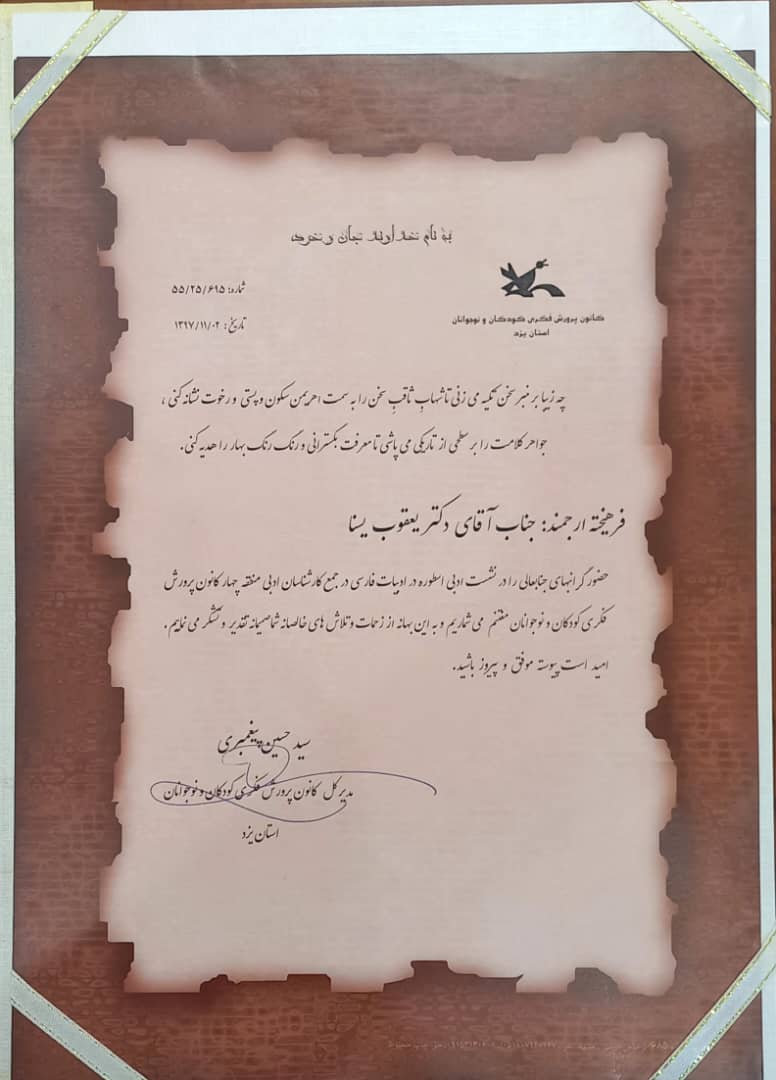 به نام خداوند جان و خرد
کانون پرورش فکری کودکان و نوجوانان
استان یزد
شماره: ۵۵/۲۵/۶۹۵
تاریخ: ۱۳۹۷/۱۱/۰۲
چه زیبا بر منبر سخن تکیه می زنی تا شهابِ ثاقبِ سخن را به سمت اهریمن سکون و پستی و رخوت نشانه کنی ،
جواهر کلامت را بر سطحی از تاریکی می پاشی تا معرفت بگسترانی و رنگ رنگ بهار را هدیه کنی.
فرهیخته ارجمند: جناب آقای دکتر یعقوب یسنا
حضور گرانبهای جنابعالی را در نشست ادبی اسطوره در ادبیات فارسی در جمع کارشناسان ادبی منطقه چهار کانون پرورش
فکری کودکان و نوجوانان مغتنم می شماریم و به این بهانه از زحمات و تلاش های خالصانه شما صمیمانه تقدیر و تشکر می نماییم.
امید است پیوسته موفق و پیروز باشید.
سید حسین پیغمبری
مدیر کل کانون پرورش فکری کودکان و نوجوانان
استان یزد